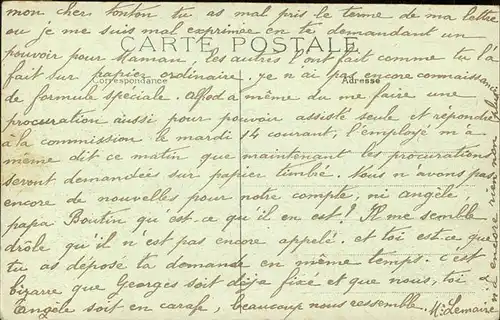 mon cher tonton tu as mal pris le terme de ma lettre
ou je me suis mal exprimée en te demandant un
CARTE POSTALE
pouvoir pour Maman, les autres l'ont fait comme tu l'a
fait sur papier ordinaire. je n'ai pas encore connaissance
Correspondance
Adresse
de formule spéciale. Alfred a même du me faire une
procuration aussi pour pouvoir assisté seule et répondre
à la commission le mardi 14 courant, l'employé m'a
même dit ce matin que maintenant les procurations
seront demandées sur papier timbré. Nous n'avons pas
encore de nouvelles pour notre compte, ni angèle
papa Boutin qu'est ce qu'il en est? Il me semble
drôle qu'il n'est pas encore appelé. et toi est-ce que
tu as déposé ta demande en même temps. c'est
bizarre que Georges soit déjà fixé et que nous, toi
Angèle soit en carafe, beaucoup nous ressemble. M. Lemaire
rien non plus